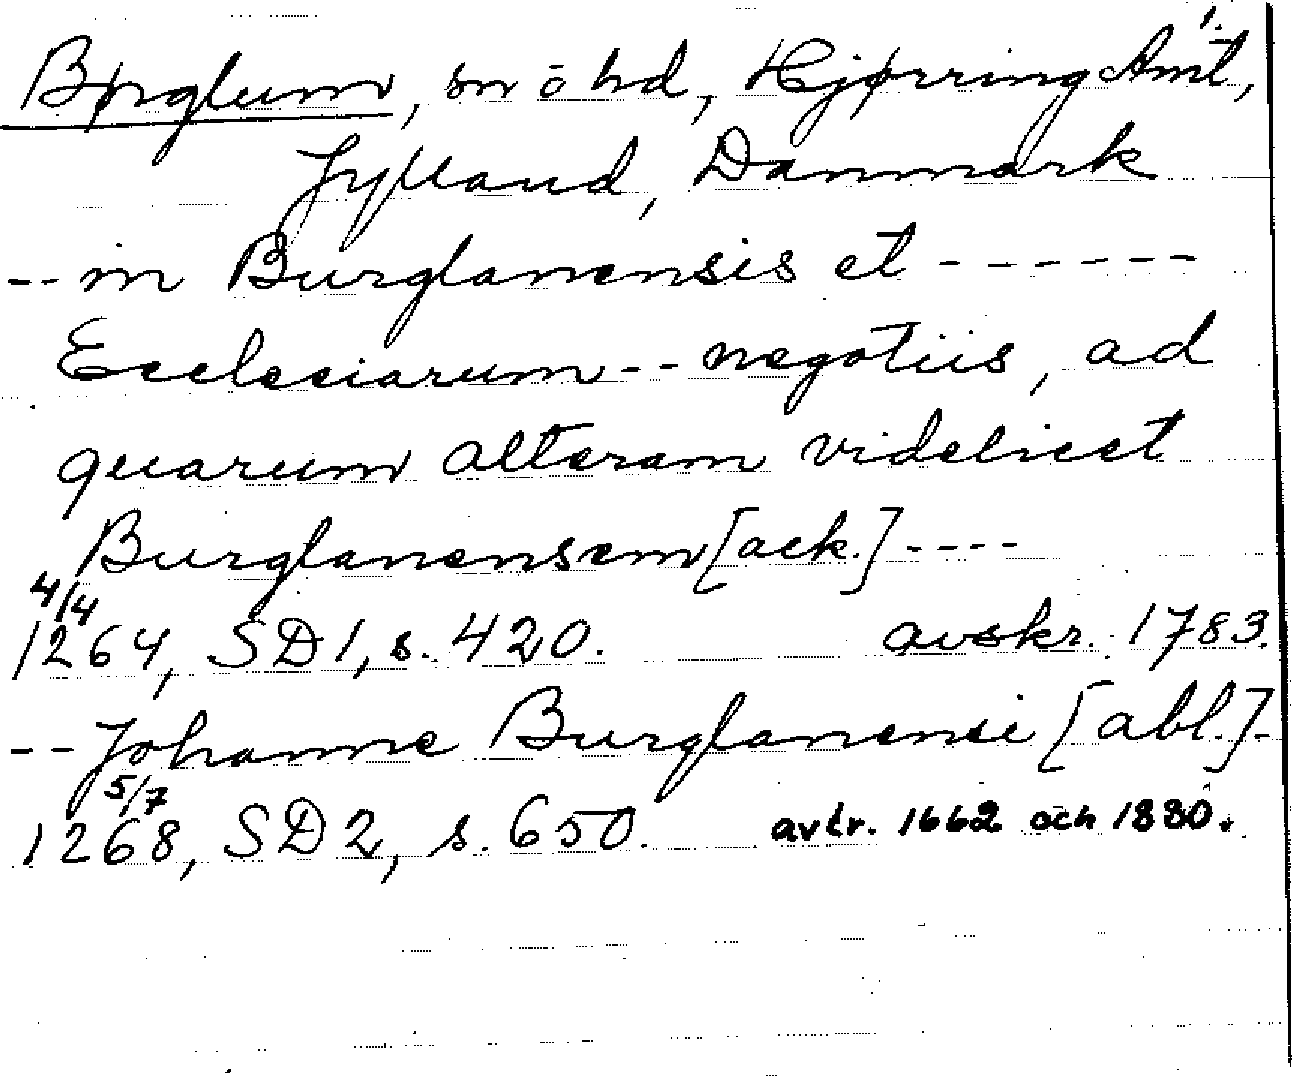 1.
Børglum, sn o hd, Hjørring Amt,
Jylland, Danmark
-- in Burglanensis et ------
Ecclesiarum -- negotiis, ad
quarum alteram videlicet
Burglanensem [ack.] ----
4/4
1264, SD1, s. 420. avskr. 1783.
-- Johanne Burglanensi [abl.] -
5/7
1268, SD2, s. 650. avtr. 1662 och 1880.